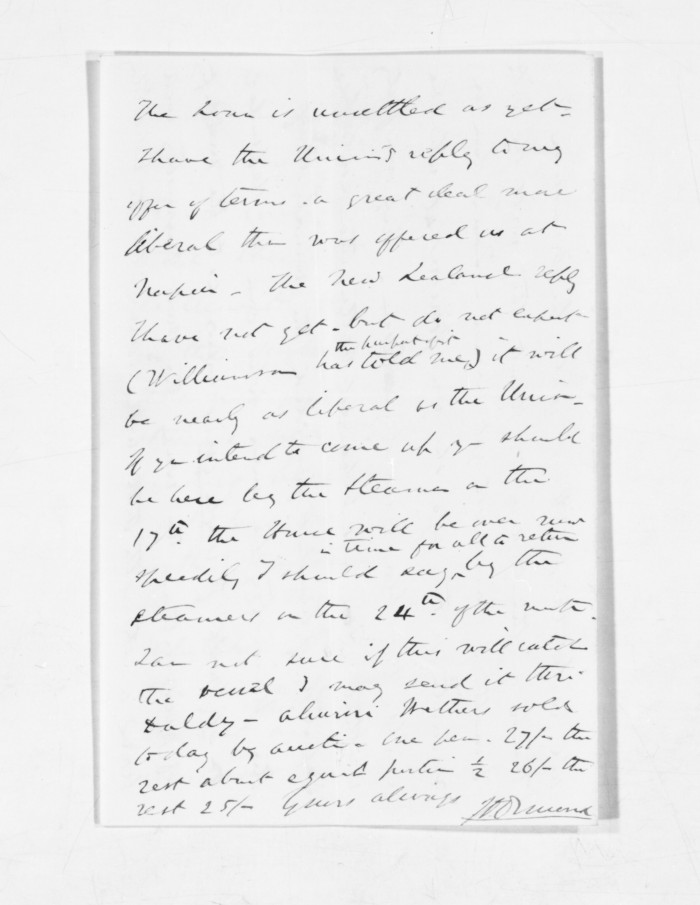 The Loan is unsettled as yet -
I have the Union's reply to my
offer of terms - a great deal more
liberal than was offered us at
Napier - The New Zealand reply
I have not yet - but do not expect
(Williamson has told me) it will
the purport of it
be nearly as liberal as the Union -
If yo intend to come up yo should
be here by the Steamer on the
17th. the House will be over now
speedily I should say - by the
in time for all to return
steamers on the 24th. of the month.
I am not sure if this will catch
the vessel I may send it thro
- Ahuriri Wethers sold
to day by auction one pen - 27/- the
rest about equal portion ½ 26/- the
rest 25/- Yours always JD Ormond